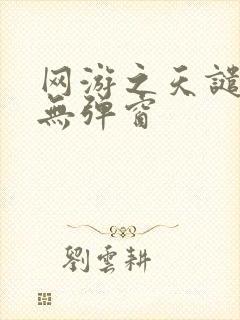 网游之天譴
無弹窗
劉雲耕